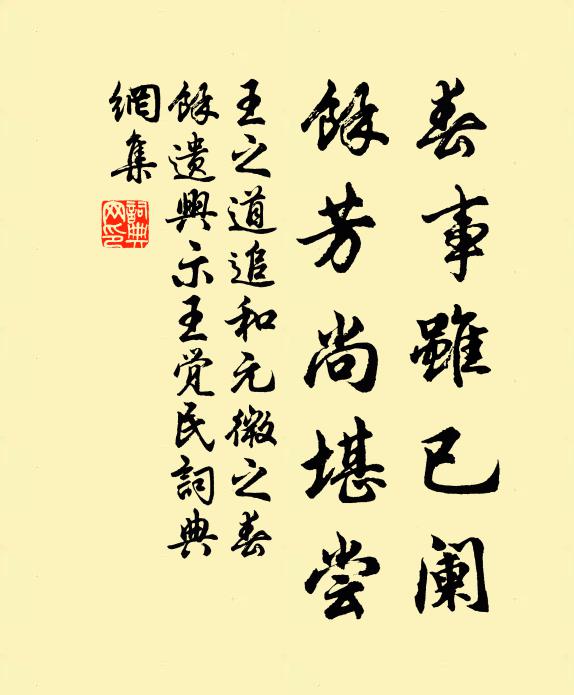 春事雖已阑
餘芳尚堪尝
王之道追和元微之春
餘遗興示王觉民詞典
網集
詞典
网印